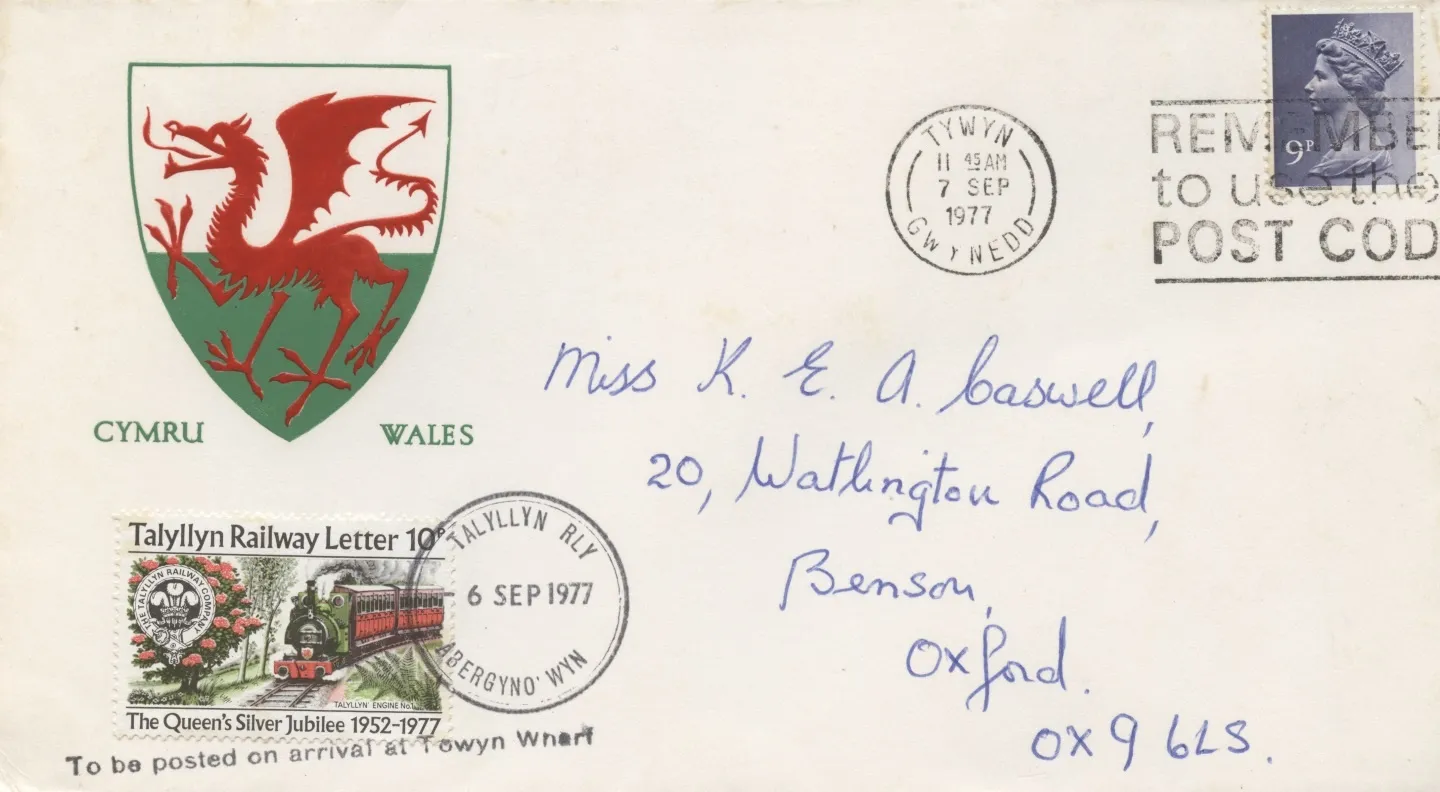 CYMRU WALES
TYWYN
11 45 AM
7 SEP
1977
GWYNEDD
9P
REMEMBE
to use the
POST COD
Miss K. E. A. Caswell,
20, Watlington Road,
Benson,
Oxford.
OX9 6LS.
Talyllyn Railway Letter 10P
THE TALYLLYN RAILWAY COMPANY
TALYLLYN ENGINE No.1
The Queen's Silver Jubilee 1952-1977
TALYLLYN RLY
6 SEP 1977
ABERGYNO'WYN
To be posted on arrival at Towyn Wharf